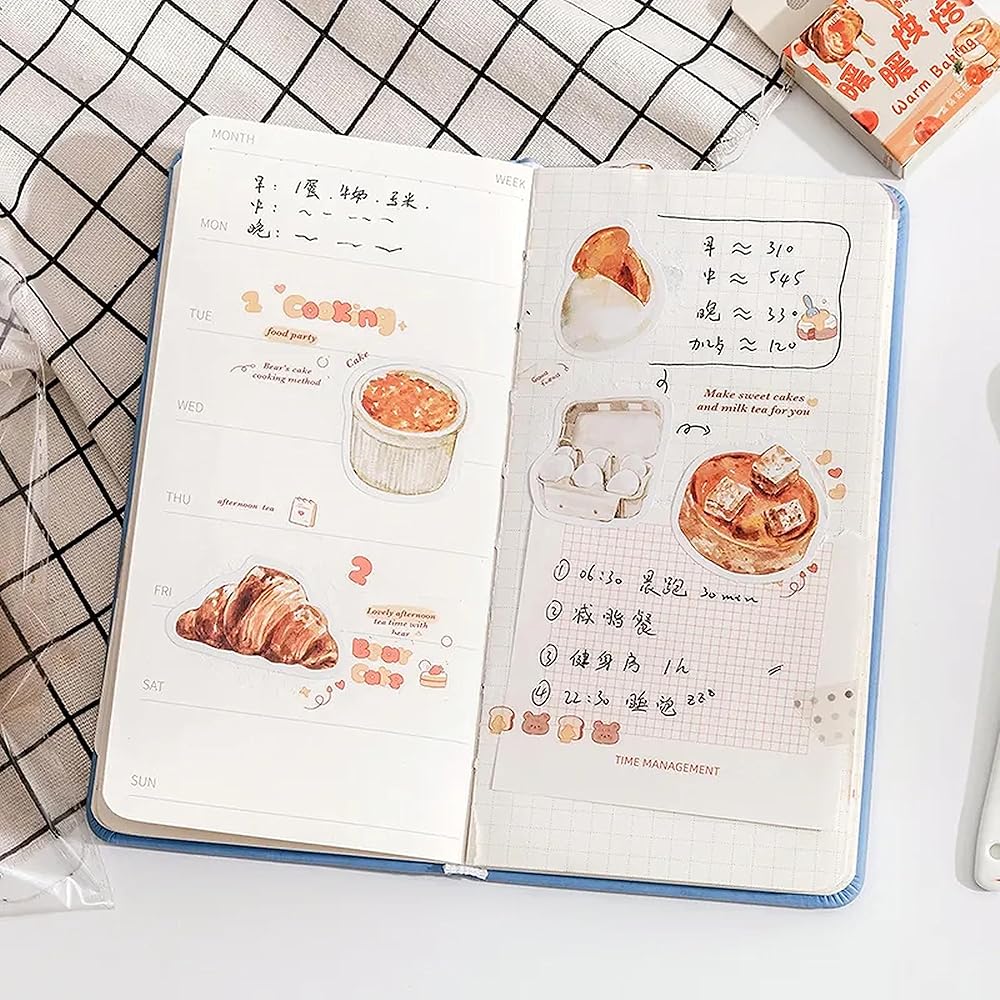 MONTH
WEEK
早: 1蛋.牛奶.玉米.
中:
晚:
MON
2 Cooking
food party
TUE
Bear's cake
cooking method
Cake
WED
THU
afternoon tea
2
FRI
Lovely afternoon
tea time with
bear
BEAR
Cake
SAT
SUN
早 ≈ 310
中 ≈ 545
晚 ≈ 330
加点 ≈ 120
Make sweet cakes
and milk tea for you
① 06:30 晨跑 30min
② 减脂餐
③ 健身房 1h
④ 22:30 睡觉 zzz
TIME MANAGEMENT
暖暖烘焙
Warm Baking